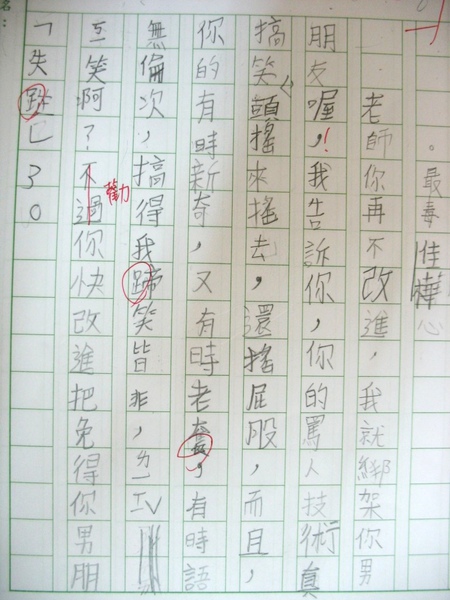 。最毒佳樺心
老師你再不改進，我就綁架你男
朋友喔，！我告訴你，你的罵人技術真
搞笑ㄟ頭搖來搖去，還搖屁股，而且，
你的有時新奇，又有時老舊，有時語
無倫次，搞得我蹄笑皆非，
笑啊？不過勸你快改進把免得你男朋
「失 」了。